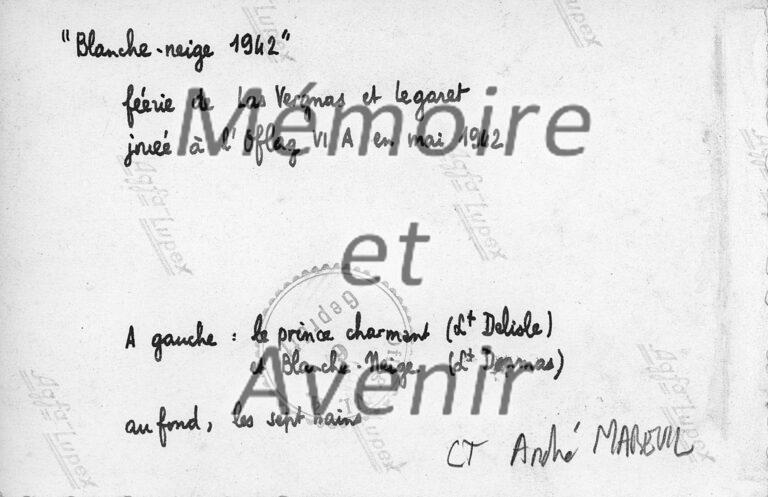 "Blanche-neige 1942"
féérie de Las Vergnas et Legaret
jouée à l'Oflag VI A en mai 1942
Mémoire
et
Avenir
A gauche : le prince charmant (Lt Delisle)
et Blanche-Neige (Lt
au fond, les sept nains
CT André MAREUIL
Agfa Lupex
Agfa Lupex
Agfa Lupex
Agfa Lupex
Geprüft